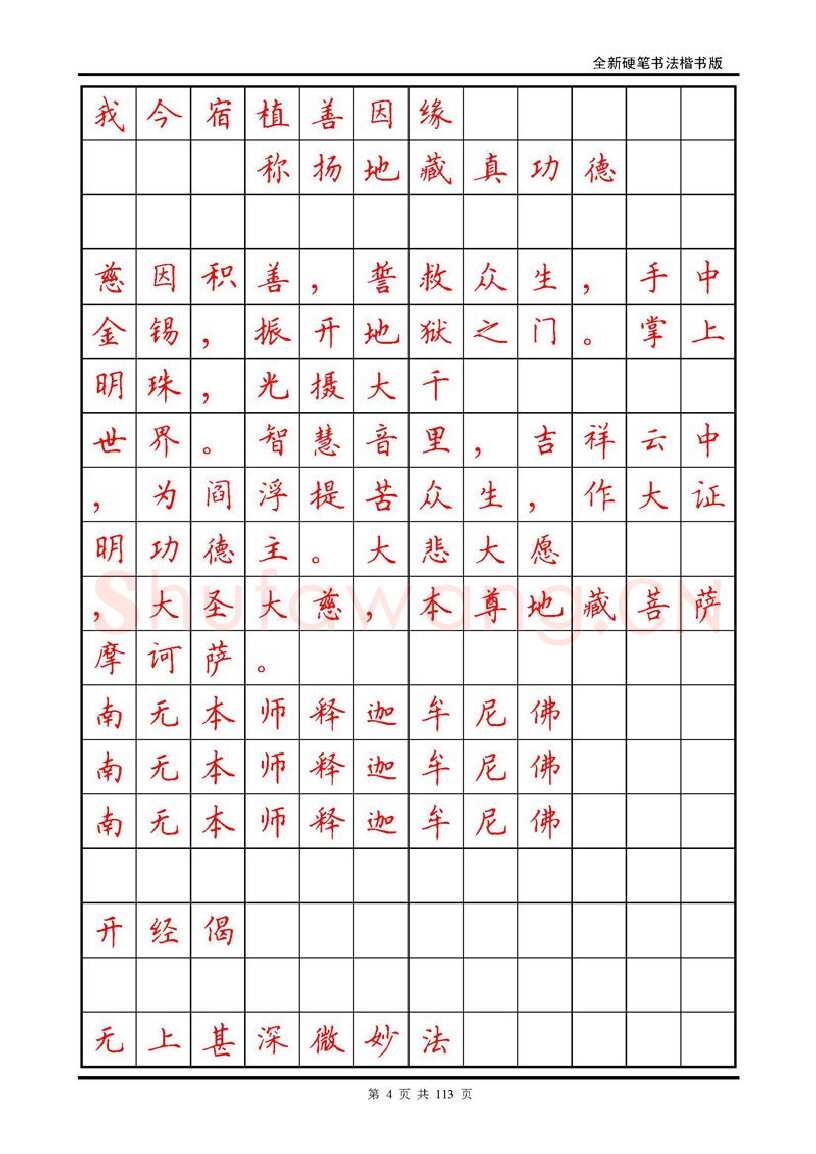 全新硬笔书法楷书版
我今宿植善因缘
称扬地藏真功德
慈因积善，誓救众生，手中
金锡，振开地狱之门。掌上
明珠，光摄大千
世界。智慧音里，吉祥云中
，为阎浮提苦众生，作大证
明功德主。大悲大愿
，大圣大慈，本尊地藏菩萨
摩诃萨。
南无本师释迦牟尼佛
南无本师释迦牟尼佛
南无本师释迦牟尼佛
开经偈
无上甚深微妙法
Shufawang.CN
第 4 页 共 113 页